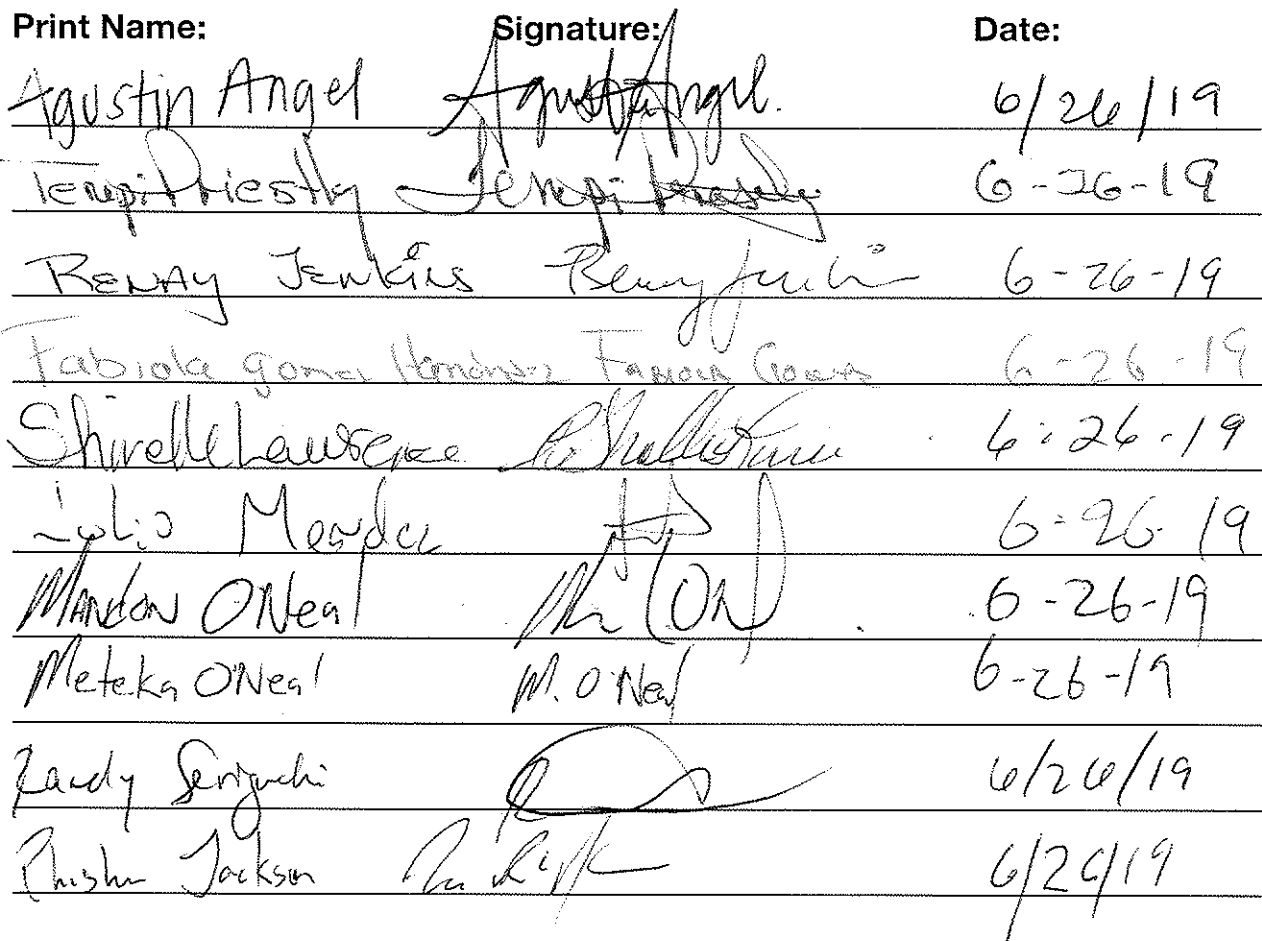 Print Name: Signature: Date:
Agustin Angel Agustin Angel. 6/26/19
Tempi Priestly Tempi Priestly 6-26-19
Renay Jenkins Renay Jenkins 6-26-19
Fabiola gomez Hernandez Fabiola Gomez 6-26-19
Shirelle Lawrence 6-26-19
Julio Mendez 6-26-19
Mandon ONeal 6-26-19
Meteka O'Neal M. O'Neal 6-26-19
Randy Seriguchi 6/26/19
Jackson 6/26/19